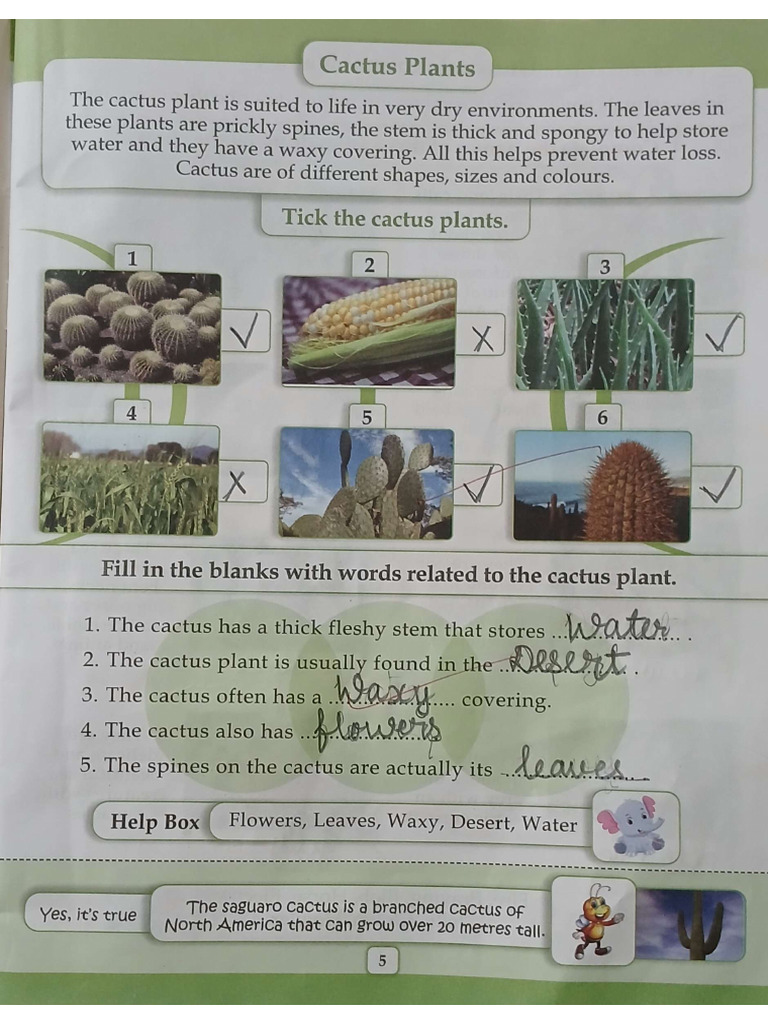 Cactus Plants
The cactus plant is suited to life in very dry environments. The leaves in
these plants are prickly spines, the stem is thick and spongy to help store
water and they have a waxy covering. All this helps prevent water loss.
Cactus are of different shapes, sizes and colours.
Tick the cactus plants.
1
2
3
4
5
6
Fill in the blanks with words related to the cactus plant.
1. The cactus has a thick fleshy stem that stores ...Water... .
2. The cactus plant is usually found in the ...Desert... .
3. The cactus often has a ...Waxy... covering.
4. The cactus also has ...flowers...
5. The spines on the cactus are actually its ...leaves...
Help Box Flowers, Leaves, Waxy, Desert, Water
Yes, it's true
The saguaro cactus is a branched cactus of
North America that can grow over 20 metres tall.
5